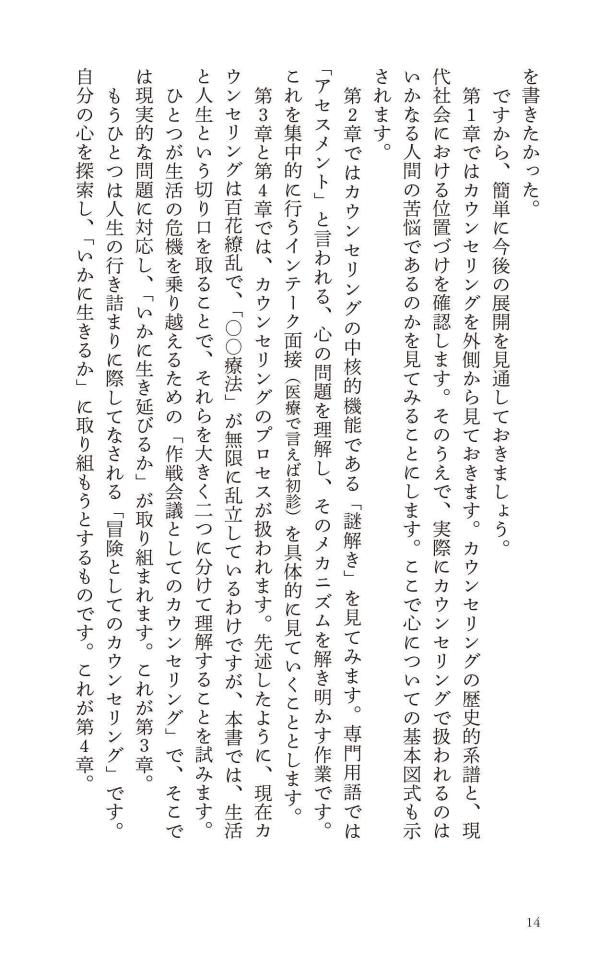 を書きたかった。
ですから、簡単に今後の展開を見通しておきましょう。
第1章ではカウンセリングを外側から見ておきます。カウンセリングの歴史的系譜と、現
代社会における位置づけを確認します。そのうえで、実際にカウンセリングで扱われるのは
いかなる人間の苦悩であるのかを見てみることにします。ここで心についての基本図式も示
されます。
第2章ではカウンセリングの中核的機能である「謎解き」を見てみます。専門用語では
「アセスメント」と言われる、心の問題を理解し、そのメカニズムを解き明かす作業です。
これを集中的に行うインテーク面接（医療で言えば初診）を具体的に見ていくこととします。
第3章と第4章では、カウンセリングのプロセスが扱われます。先述したように、現在カ
ウンセリングは百花繚乱で、「〇〇療法」が無限に乱立しているわけですが、本書では、生活
と人生という切り口を取ることで、それらを大きく二つに分けて理解することを試みます。
ひとつが生活の危機を乗り越えるための「作戦会議としてのカウンセリング」で、そこで
は現実的な問題に対応し、「いかに生き延びるか」が取り組まれます。これが第3章。
もうひとつは人生の行き詰まりに際してなされる「冒険としてのカウンセリング」です。
自分の心を探索し、「いかに生きるか」に取り組もうとするものです。これが第4章。
14